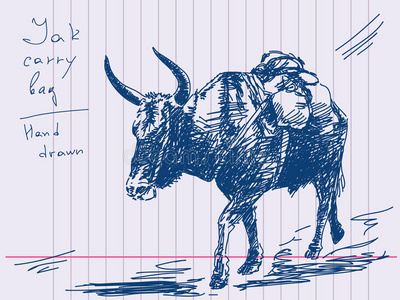 Yak
carry
bag
Hand
drawn